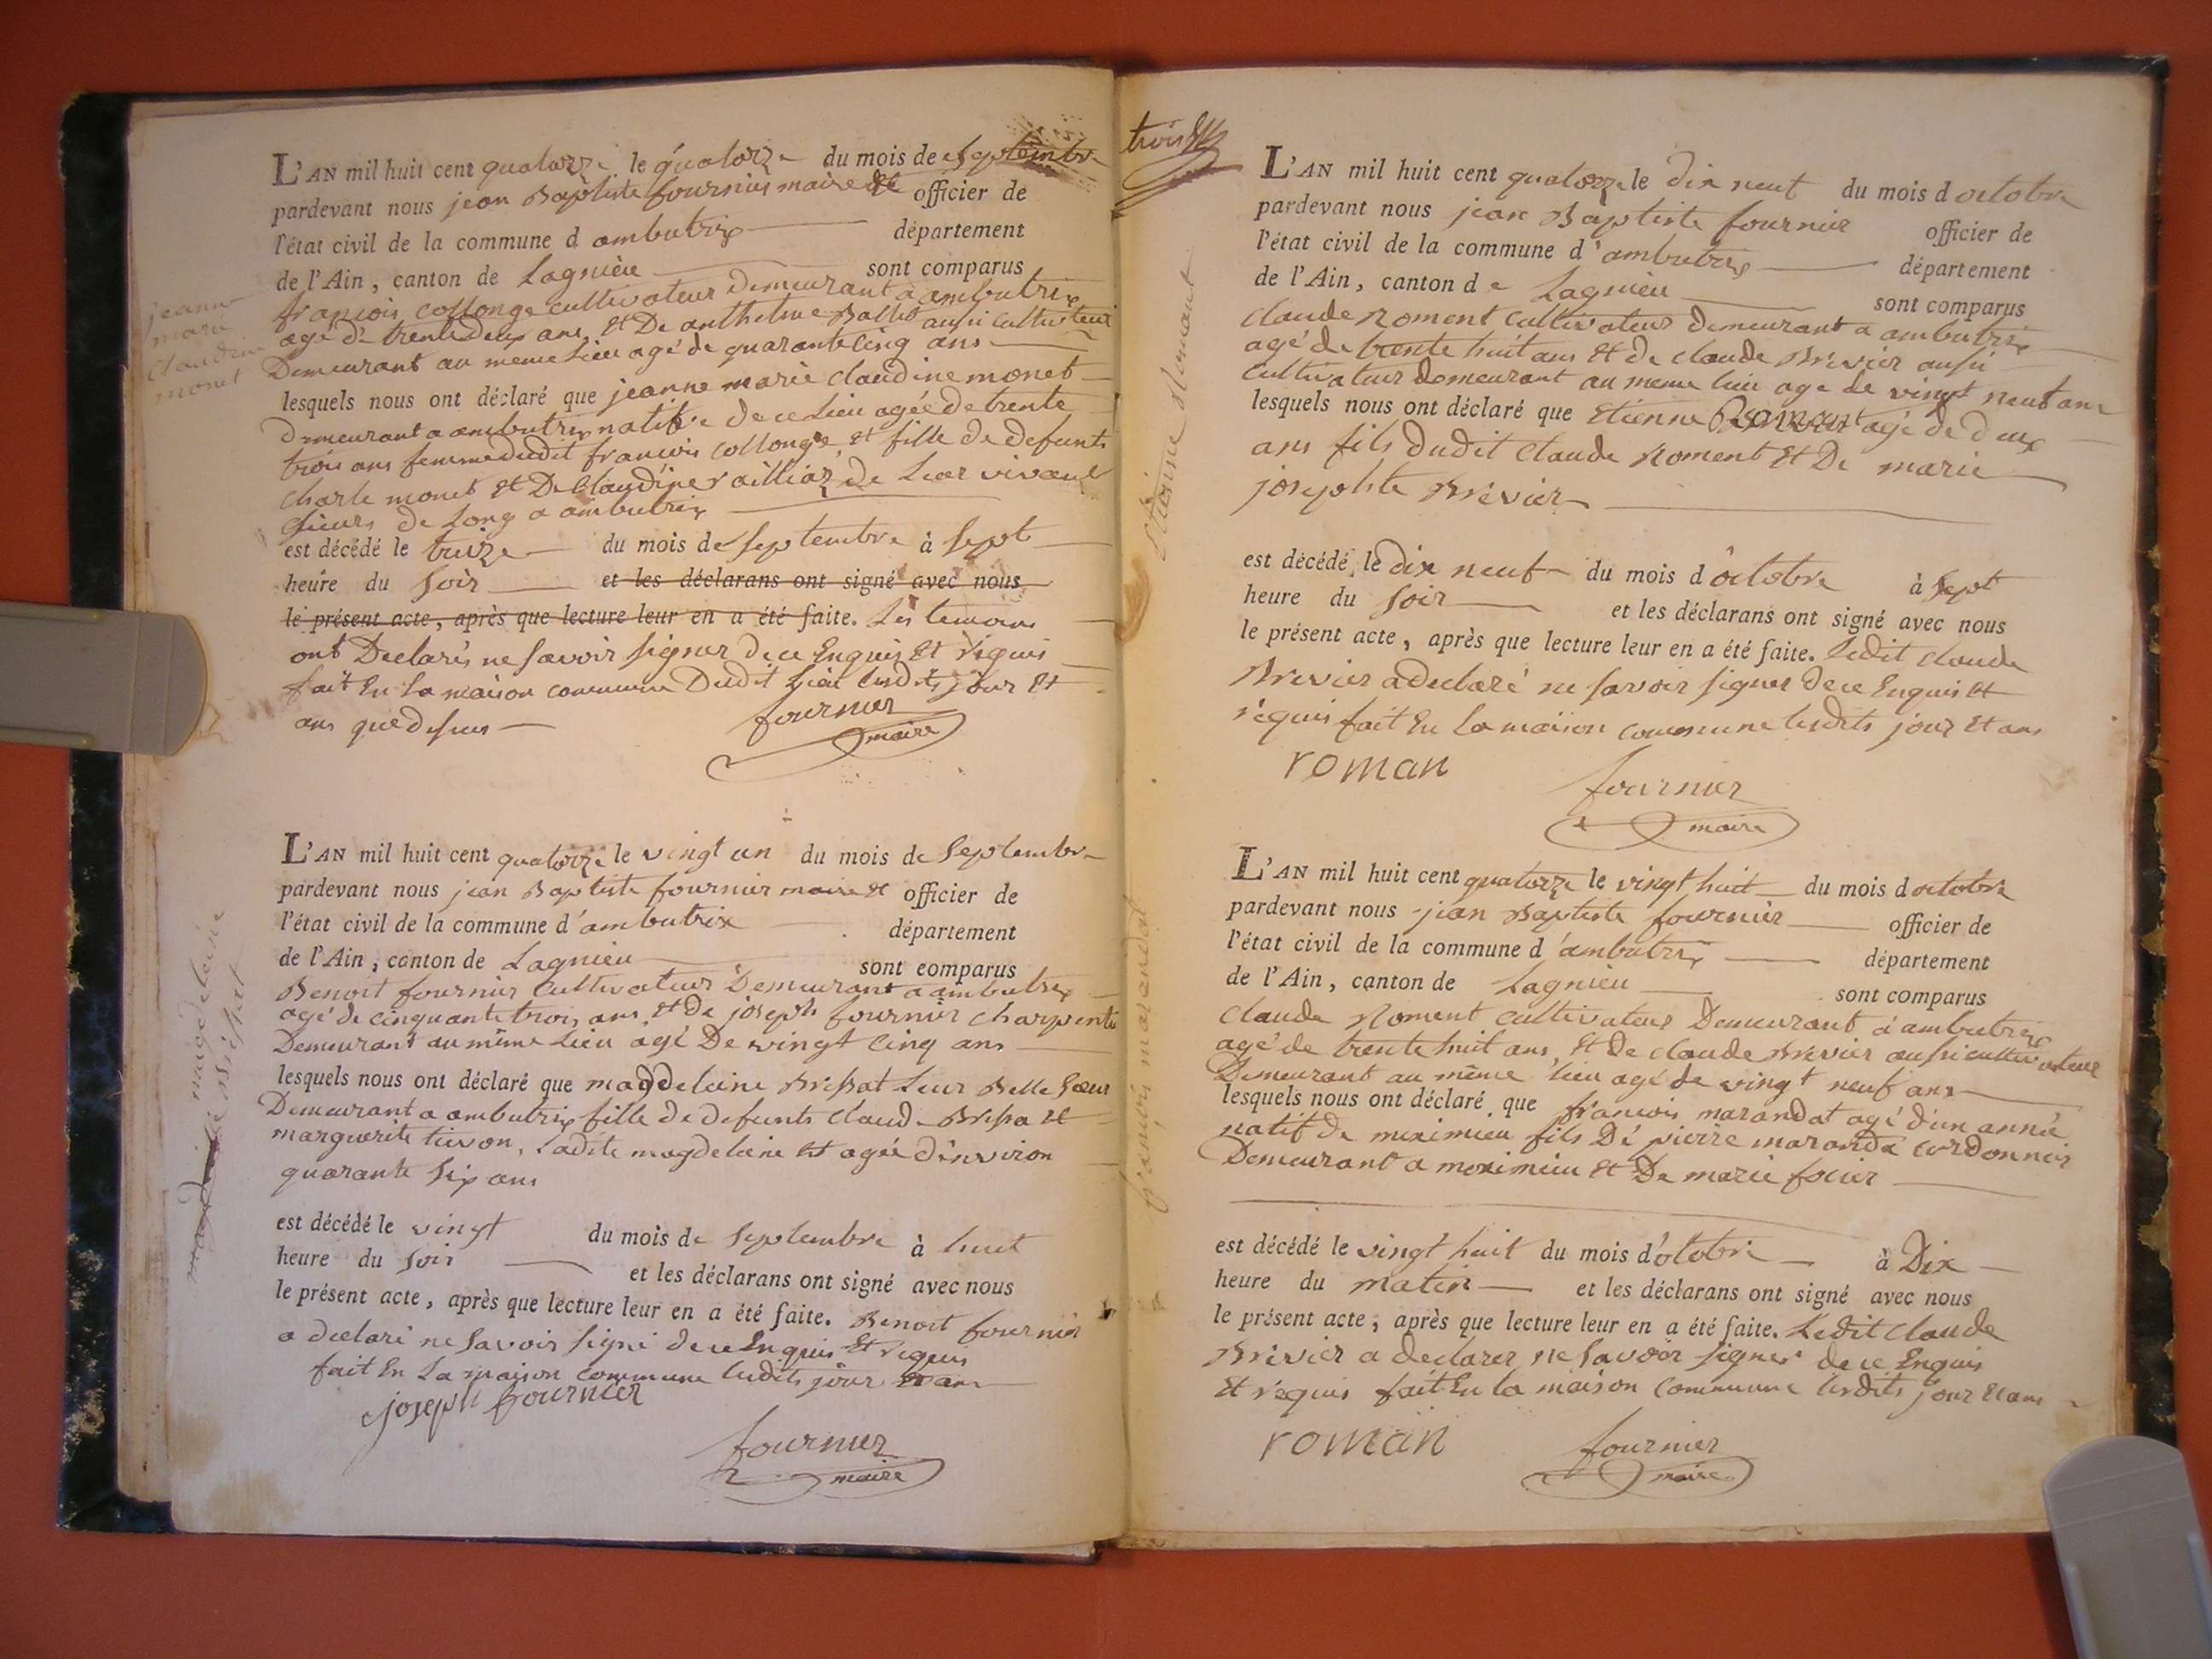 jeanne
marie
claudine
monet
L'AN mil huit cent quatorze le quatorze du mois de septembre
pardevant nous jean Baptiste fournier maire et officier de
l'état civil de la commune d ambutrix département
de l'Ain, canton de Lagnieu sont comparus
françois collonge cultivateur Demeurant a ambutrix
agé de trente deux ans, et De anthelme Ballet aussi cultivateur
Demeurant au meme Lieu agé de quarante cinq ans
lesquels nous ont déclaré que jeanne marie claudine monet
Demeurant a ambutrix native De ce Lieu agée de trente
trois ans femme dudit françois collonge, et fille de defunts
charle monet et De Claudine railliaz de Leur vivant
de Long a ambutrix
est décédé le treize du mois de septembre à sept
heure du soir et les déclarans ont signé avec nous
le présent acte, après que lecture leur en a été faite. Les temoins
ont Declarés ne savoir signer de ce Enquis Et requis
fait En La maison commune Dudit Lieu lesdits jour Et
ans que dessus
fournier
maire
magdeleine
Brissat
L'AN mil huit cent quatorze le vingt un du mois de septembre
pardevant nous jean Baptiste fournier maire et officier de
l'état civil de la commune d'ambutrix département
de l'Ain, canton de Lagnieu sont comparus
Benoit fournier Cultivateur Demeurant a ambutrix
agé de cinquante trois ans et de joseph fournier charpentie
Demeurant au même Lieu agé De vingt cinq ans
lesquels nous ont déclaré que magdeleine Brissat Leur Belle sœur
Demeurant a ambutrix fille de defunts claude Brissa et
marguerite tievon, Ladite magdeleine est agée d'environ
quarante six ans
est décédé le vingt du mois de septembre à huit
heure du soir et les déclarans ont signé avec nous
le présent acte, après que lecture leur en a été faite. Benoit fournier
a declaré ne savoir signé de ce Enquis Et requis
fait En La maison commune lesdits jour Et ans
joseph fournier
fournier
maire
trois
Etienne Romant
L'AN mil huit cent quatorze le dix neuf du mois d octobre
pardevant nous jean Baptiste fournier officier de
l'état civil de la commune d'ambutrix département
de l'Ain, canton de Lagnieu sont comparus
claude Roment Cultivateur demeurant a ambutrix
agé de trente huit ans Et de claude Brevier aussi
cultivateur demeurant au meme lieu age de vingt neuf ans
lesquels nous ont déclaré que Etienne Romant agé de deux
ans fils dudit claude Roment Et De marie
josephte Brevier
est décédé, le dix neuf du mois d'octobre à sept
heure du soir et les déclarans ont signé avec nous
le présent acte, après que lecture leur en a été faite. Ledit claude
Brevier a declaré ne savoir signer de ce Enquis et
requis fait En La maison commune lesdits jour Et ans
roman
fournier
maire
françois marandat
L'AN mil huit cent quatorze le vingt huit du mois d octobre
pardevant nous jean Baptiste fournier officier de
l'état civil de la commune d'ambutrix département
de l'Ain, canton de Lagnieu sont comparus
claude Roment cultivateur Demeurant a ambutrix
agé de trente huit ans, Et de claude Brevier aussi cultivateur
Demeurant au même lieu agé de vingt neuf ans
lesquels nous ont déclaré que françois marandat agé d'un année
natif de meximieu fils Dé pierre maranda cordonnier
Demeurant a meximieu Et De marie focier
est décédé le vingt huit du mois d'octobre à Dix
heure du matin et les déclarans ont signé avec nous
le présent acte, après que lecture leur en a été faite. Ledit claude
Brevier a declarer ne savoir signer de ce Enquis
Et requis fait En la maison commune lesdits jour Et ans
roman
fournier
maire